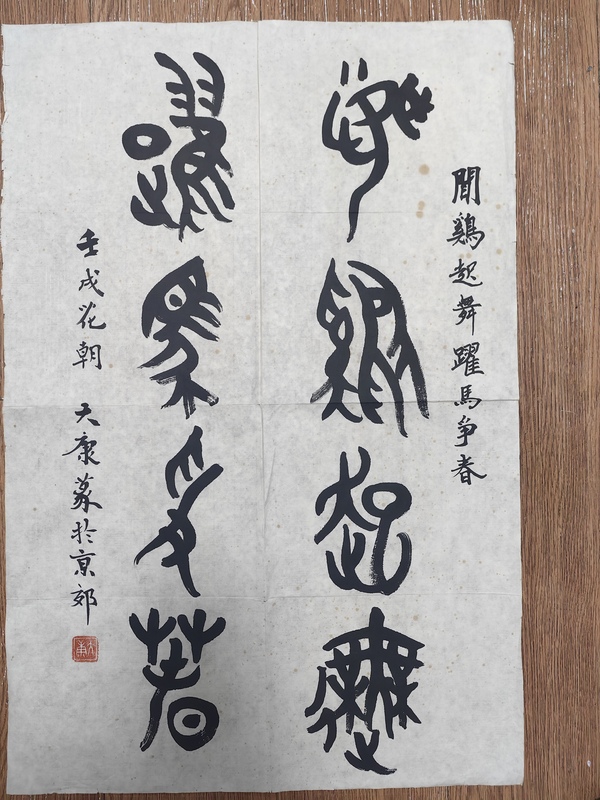 聞鷄起舞躍馬爭春
聞鷄起舞
躍馬爭春
壬戌花朝 大康篆於京郊
大康